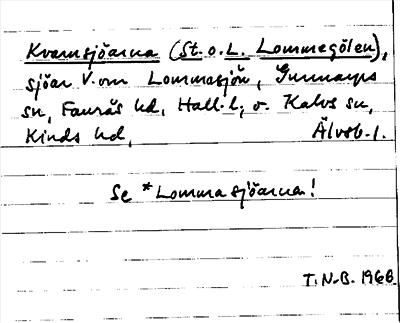 Kvarnsjöarna (St. o. L. Lommegölen),
sjöar V. om Lommasjön, Gunnarps
sn, Faurås hd, Hall. l; o. Kalvs sn,
Kinds hd, Älvsb. l.
Se *Lommasjöarna!
T.N.B. 1966